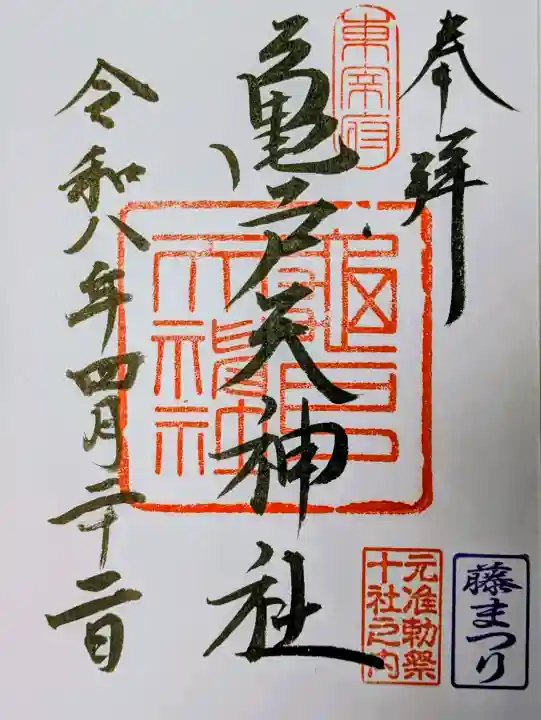 奉拝
東宰府
亀戸天神社
亀戸天神社
令和八年四月二十二日
元准勅祭
十社之内
藤まつり